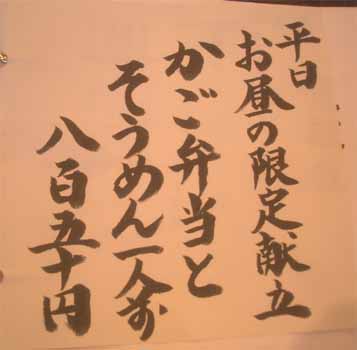 平日
お昼の限定献立
かご弁当と
そうめん一人前
八百五十円